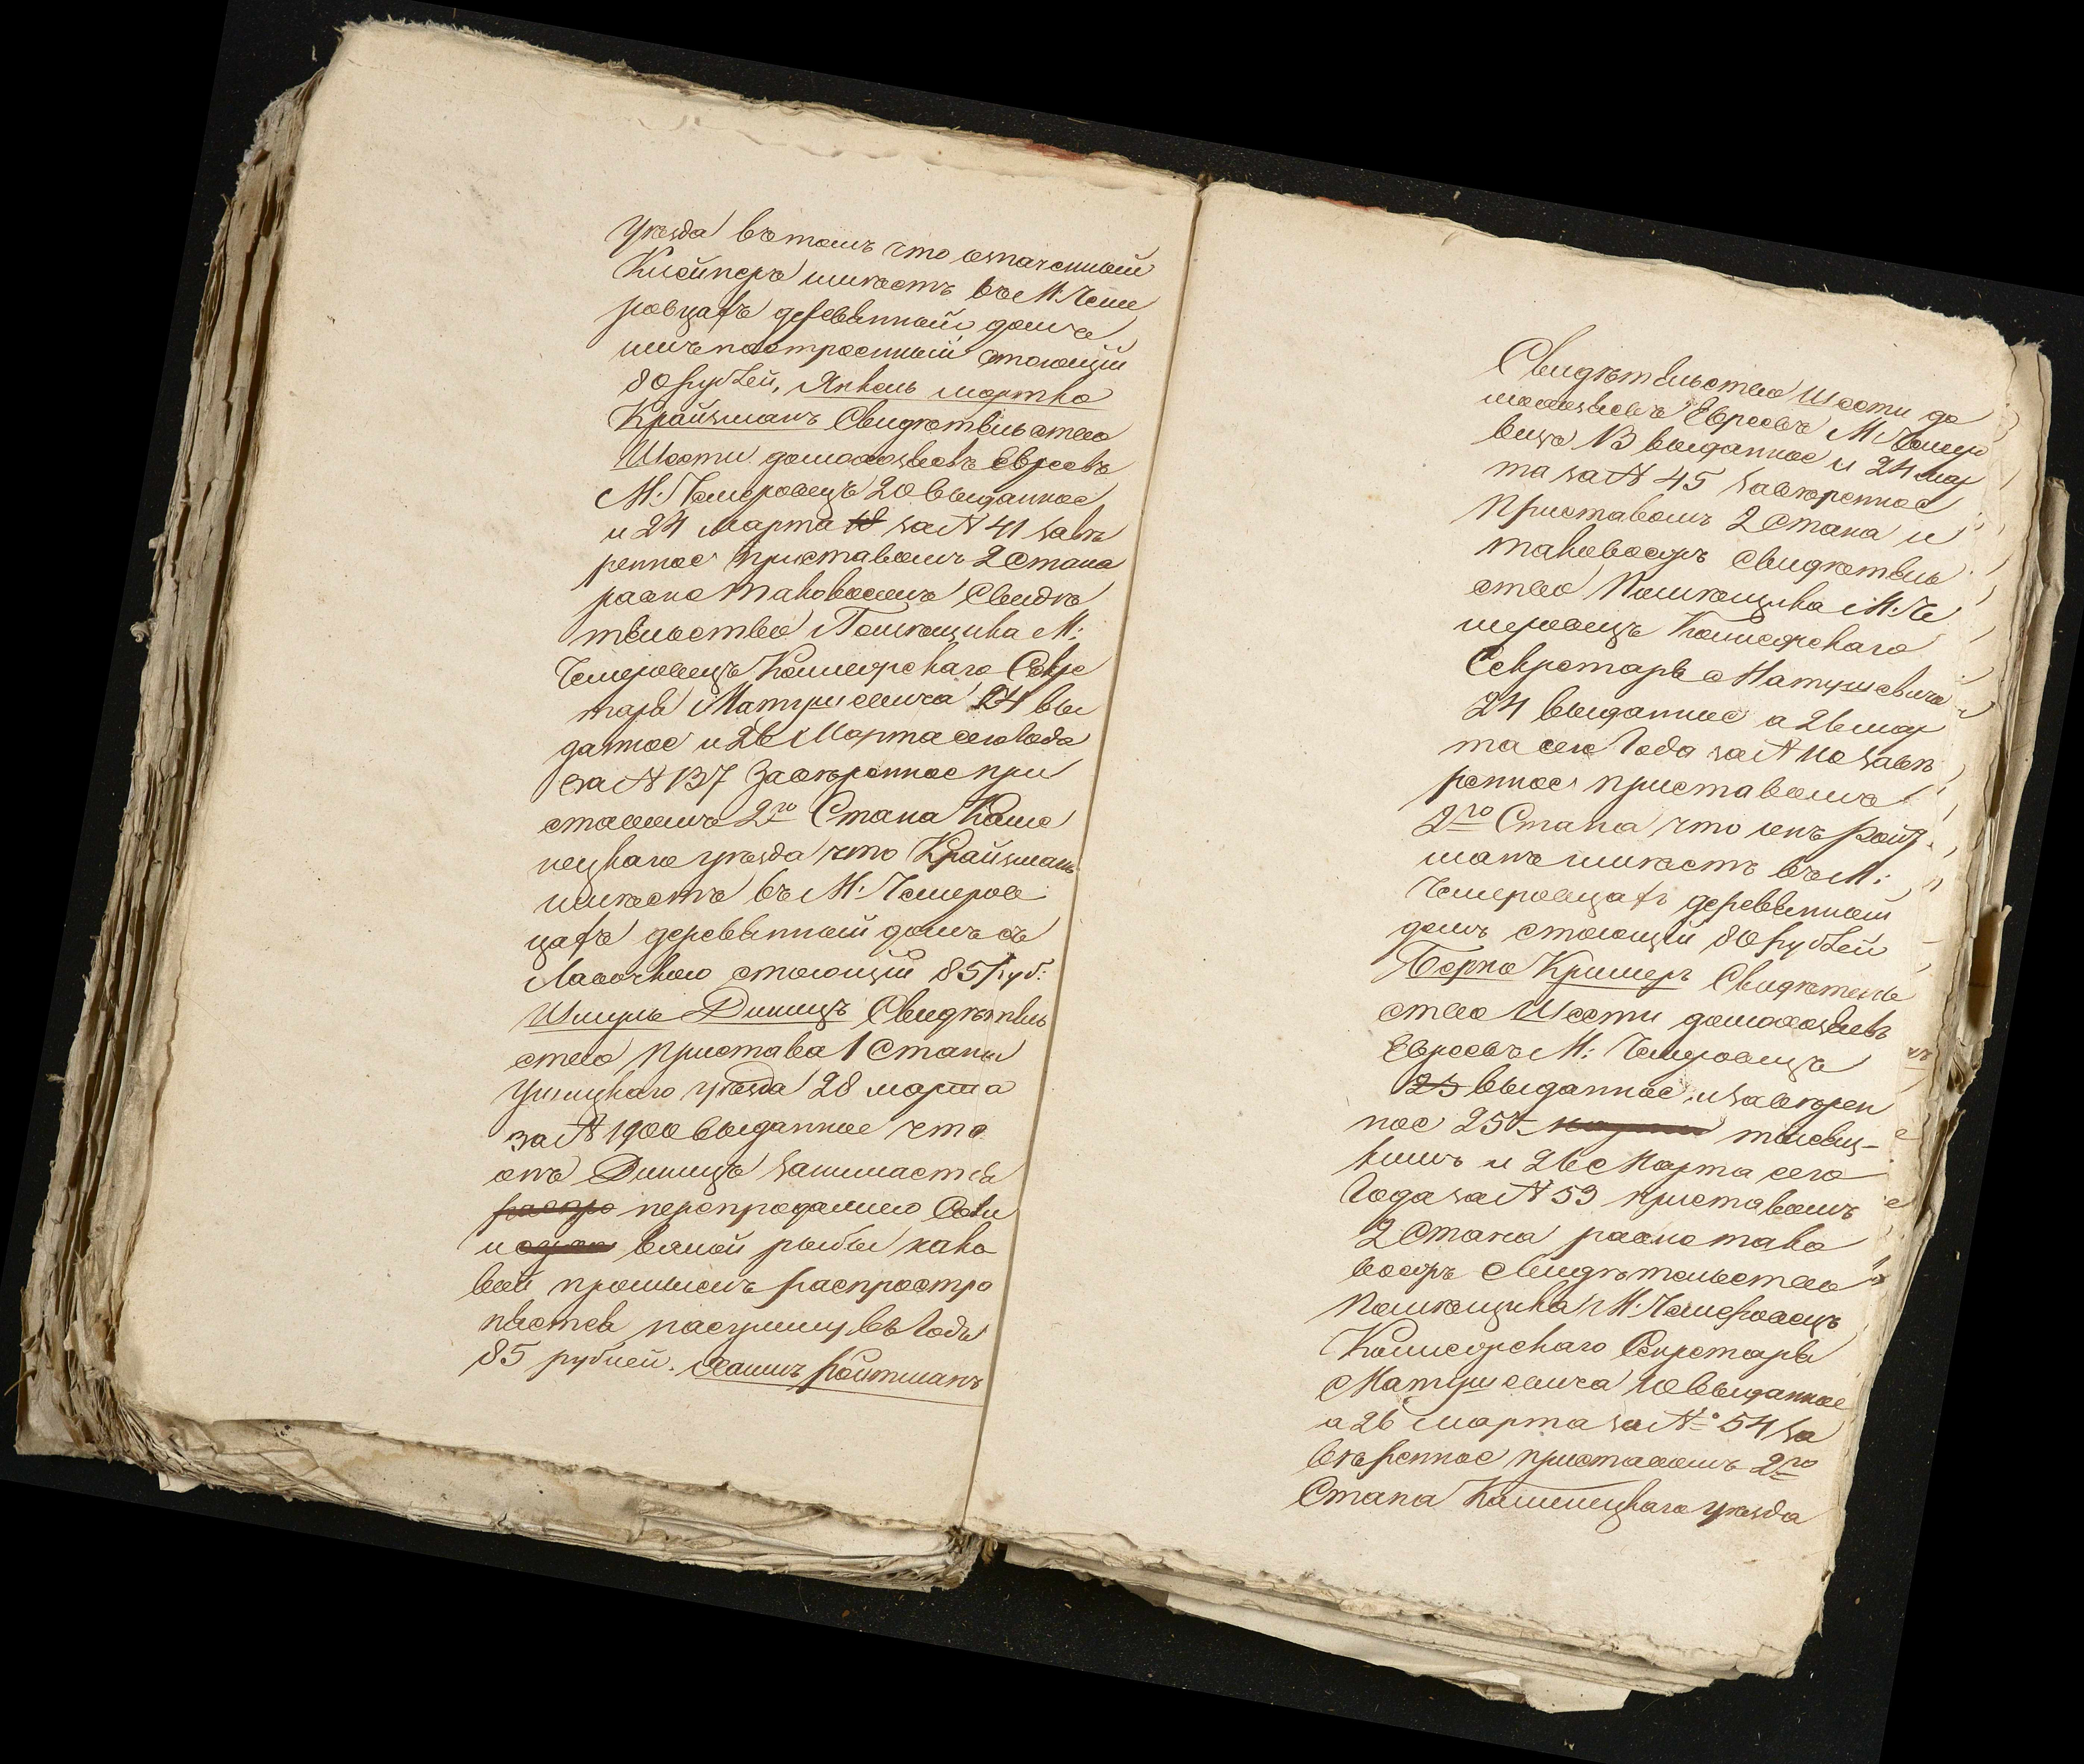 уѣзда въ томъ что означенный
Клейнеръ имѣетъ въ М. Чеме
ровцахъ деревянный домъ
имъ построенный стоющій
80 рублей, Янкель мортко
Крайзманъ Свидѣтельство
Шести домохозяевъ Евреевъ
М: Чемеровецъ 20 выданное
и 24 марта за № 41 завѣ
ренное приставомъ 2 Стана
равно таковоежъ Свидѣ
тельство Помѣщика М:
Чемеровецъ Колежскаго Секре
таря Матушевича 24 вы
данное и 26 Марта сего года
за № 137 Завѣренное при
ставомъ 2го Стана Каме
нецкаго уѣзда что Крайзманъ
имѣетъ въ М: Чемеров
цахъ деревянный домъ съ
Лавочкою стоющій 85 руб:
Шмуль Диницъ Свидѣтель
ство Пристава 1 Стана
Ушицкаго уѣзда 28 марта
за № 1900 выданное что
онъ Диницъ занимается
перепродажею Соли
и вялой рыбы како
вой промыселъ распростра
няется на сумму въ годъ
85 рублей. Хаимъ Ройтманъ
Свидѣтельство Шести до
мохозяевъ Евреевъ М. Чемеро
вецъ 13 выданное и 24 мар
та за № 45 завѣренное
Приставомъ 2 Стана и
таковоежъ Свидѣтель
ство Помѣщика М: Че
меровецъ Колежскаго
Секретаря Матушевича
24 выданное а 26 мар
та сего Года за № 110 завѣ
ренное приставомъ
2го Стана что онъ Ройт
манъ имѣетъ въ М:
Чемеровцахъ деревянный
домъ стоющій 80 рублей
Берко Кримеръ Свидѣтель
ство Шести домохозяевъ
Евреевъ М: Чемеровецъ
23 выданное и завѣрен
ное 25
и 26 Марта сего
Года за № 53 приставомъ
2 Стана равно тако
воежъ Свидѣтельство
Помѣщика М. Чемеровецъ
Колежскаго Секретаря
Матушевича 10 выданное
а 26 марта за № 54 за
вѣренное приставомъ 2го
Стана Каменецкаго уѣзда